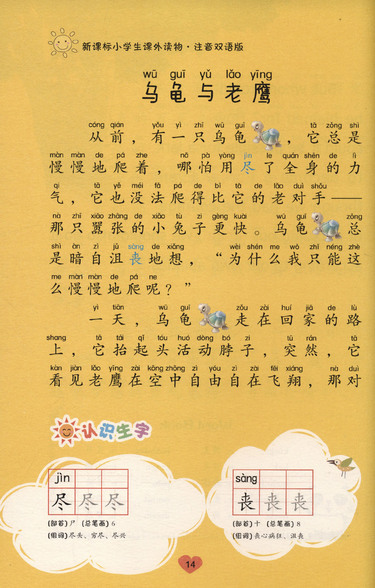 新课标小学生课外读物·注音双语版
wū guī yǔ lǎo yīng
乌龟与老鹰
cóng qián yǒu yì zhī wū guī tā zǒng shì
从前，有一只乌龟，它总是
màn màn de pá zhe nǎ pà yòng jìn le quán shēn de lì
慢慢地爬着，哪怕用尽了全身的力
qì tā yě méi fǎ pá de bǐ tā de lǎo duì shǒu
气，它也没法爬得比它的老对手——
nà zhī xiāo zhāng de xiǎo tù zi gèng kuài wū guī zǒng
那只嚣张的小兔子更快。乌龟总
shì àn zì jǔ sàng de xiǎng wèi shén me wǒ zhǐ néng zhè
是暗自沮丧地想，“为什么我只能这
me màn màn de pá ne
么慢慢地爬呢？”
yì tiān wū guī zǒu zài huí jiā de lù
一天，乌龟走在回家的路
shang tā tái qǐ tóu huó dòng bó zi tū rán tā
上，它抬起头活动脖子，突然，它
kàn jiàn lǎo yīng zài kōng zhōng zì yóu zì zài fēi xiáng nà duì
看见老鹰在空中自由自在飞翔，那对
认识生字
jìn
尽尽尽
(部首) 尸 (总笔画) 6
(组词) 尽头、穷尽、尽兴
sàng
丧丧丧
(部首) 十 (总笔画) 8
(组词) 丧心病狂、沮丧
14